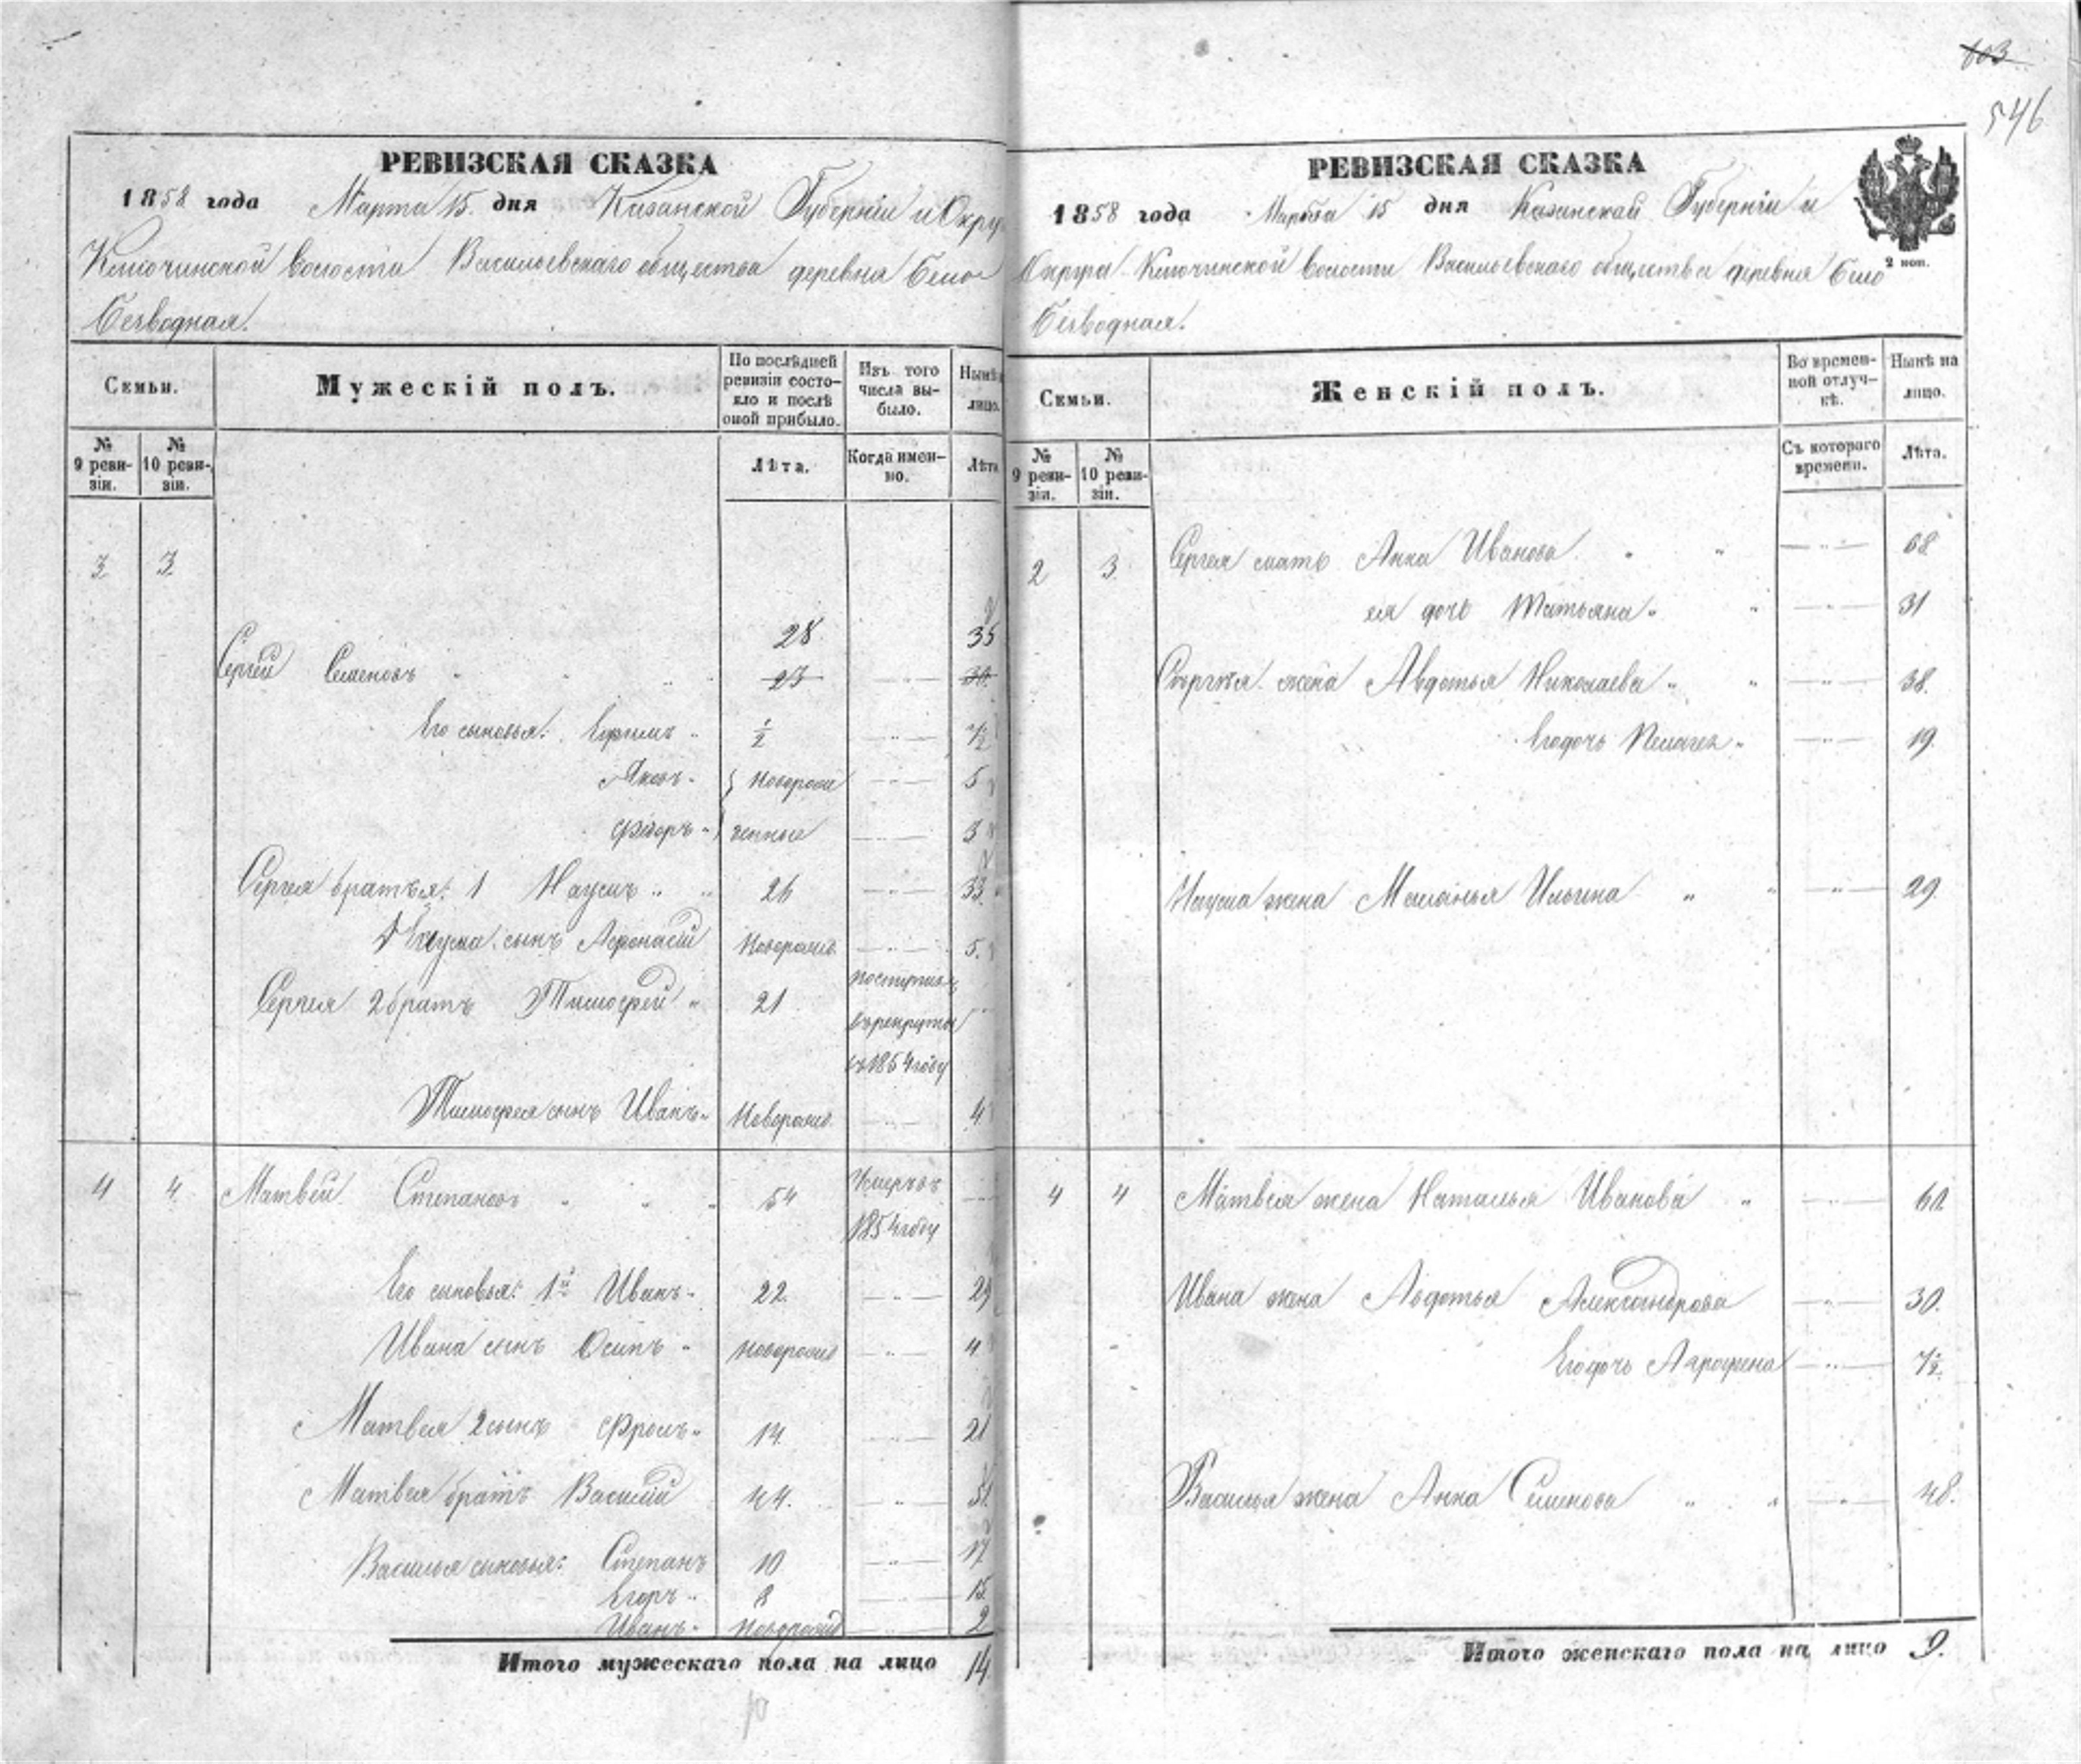 103
546
РЕВИЗСКАЯ СКАЗКА
1858 года Марта 15. дня Казанской Губерніи и Окру
Ключинской волости Васильевскаго общества деревня Бело
Безводная.
Семьи.
Мужескій полъ.
По послѣдней ревизіи состояло и послѣ оной прибыло.
Изъ того числа выбыло.
Нынѣ лицо.
№ 9 ревизіи.
№ 10 ревизіи.
Лѣта.
Когда именно.
Лѣта
3 3
28 35
Сергей Семеновъ 23 30
Его сыновья: Ефимъ 1/2 7 1/2
Яковъ Новорож 5
Фёдоръ денные 3
Сергея братья: 1 Наумъ 26 33
Наума сынъ Афонасий Новорожд 5.
Сергея 2 братъ Тимофей 21 поступилъ
въ рекруты
въ 1854 году
Тимофея сынъ Иванъ Новорожд 4
4 4 Матвей Степановъ 54 Умеръ въ
1854 году
Его сыновья: 1й Иванъ 22 29
Ивана сынъ Осипъ Новорожд 4
Матвея 2 сынъ Фролъ 14 21
Матвея братъ Василий 44. 51.
Василья сыновья: Степанъ 10 17.
Егоръ 8 15
Иванъ Новорожд 2
Итого мужескаго пола на лицо 14.
РЕВИЗСКАЯ СКАЗКА
1858 года Марта 15 дня Казанской Губерніи и
Округа Ключинской волости Васильевскаго общества деревня Бело
2 коп.
Безводная.
Семьи.
Женскій полъ.
Во временной отлучкѣ.
Нынѣ на лицо.
№ 9 ревизіи.
№ 10 ревизіи.
Съ котораго времени.
Лѣта.
2 3 Сергея мать Анна Иванова 68
ея дочь Татьяна 31
Сергея жена Авдотья Николаева 38.
Его дочь Пелагея 19.
Наума жена Маланья Ильина 29.
4 4 Матвея жена Наталья Иванова 61
Ивана жена Авдотья Александрова 30.
Его дочь 7 1/2
Василья жена Анна Семенова 48.
Итого женскаго пола на лицо 9.